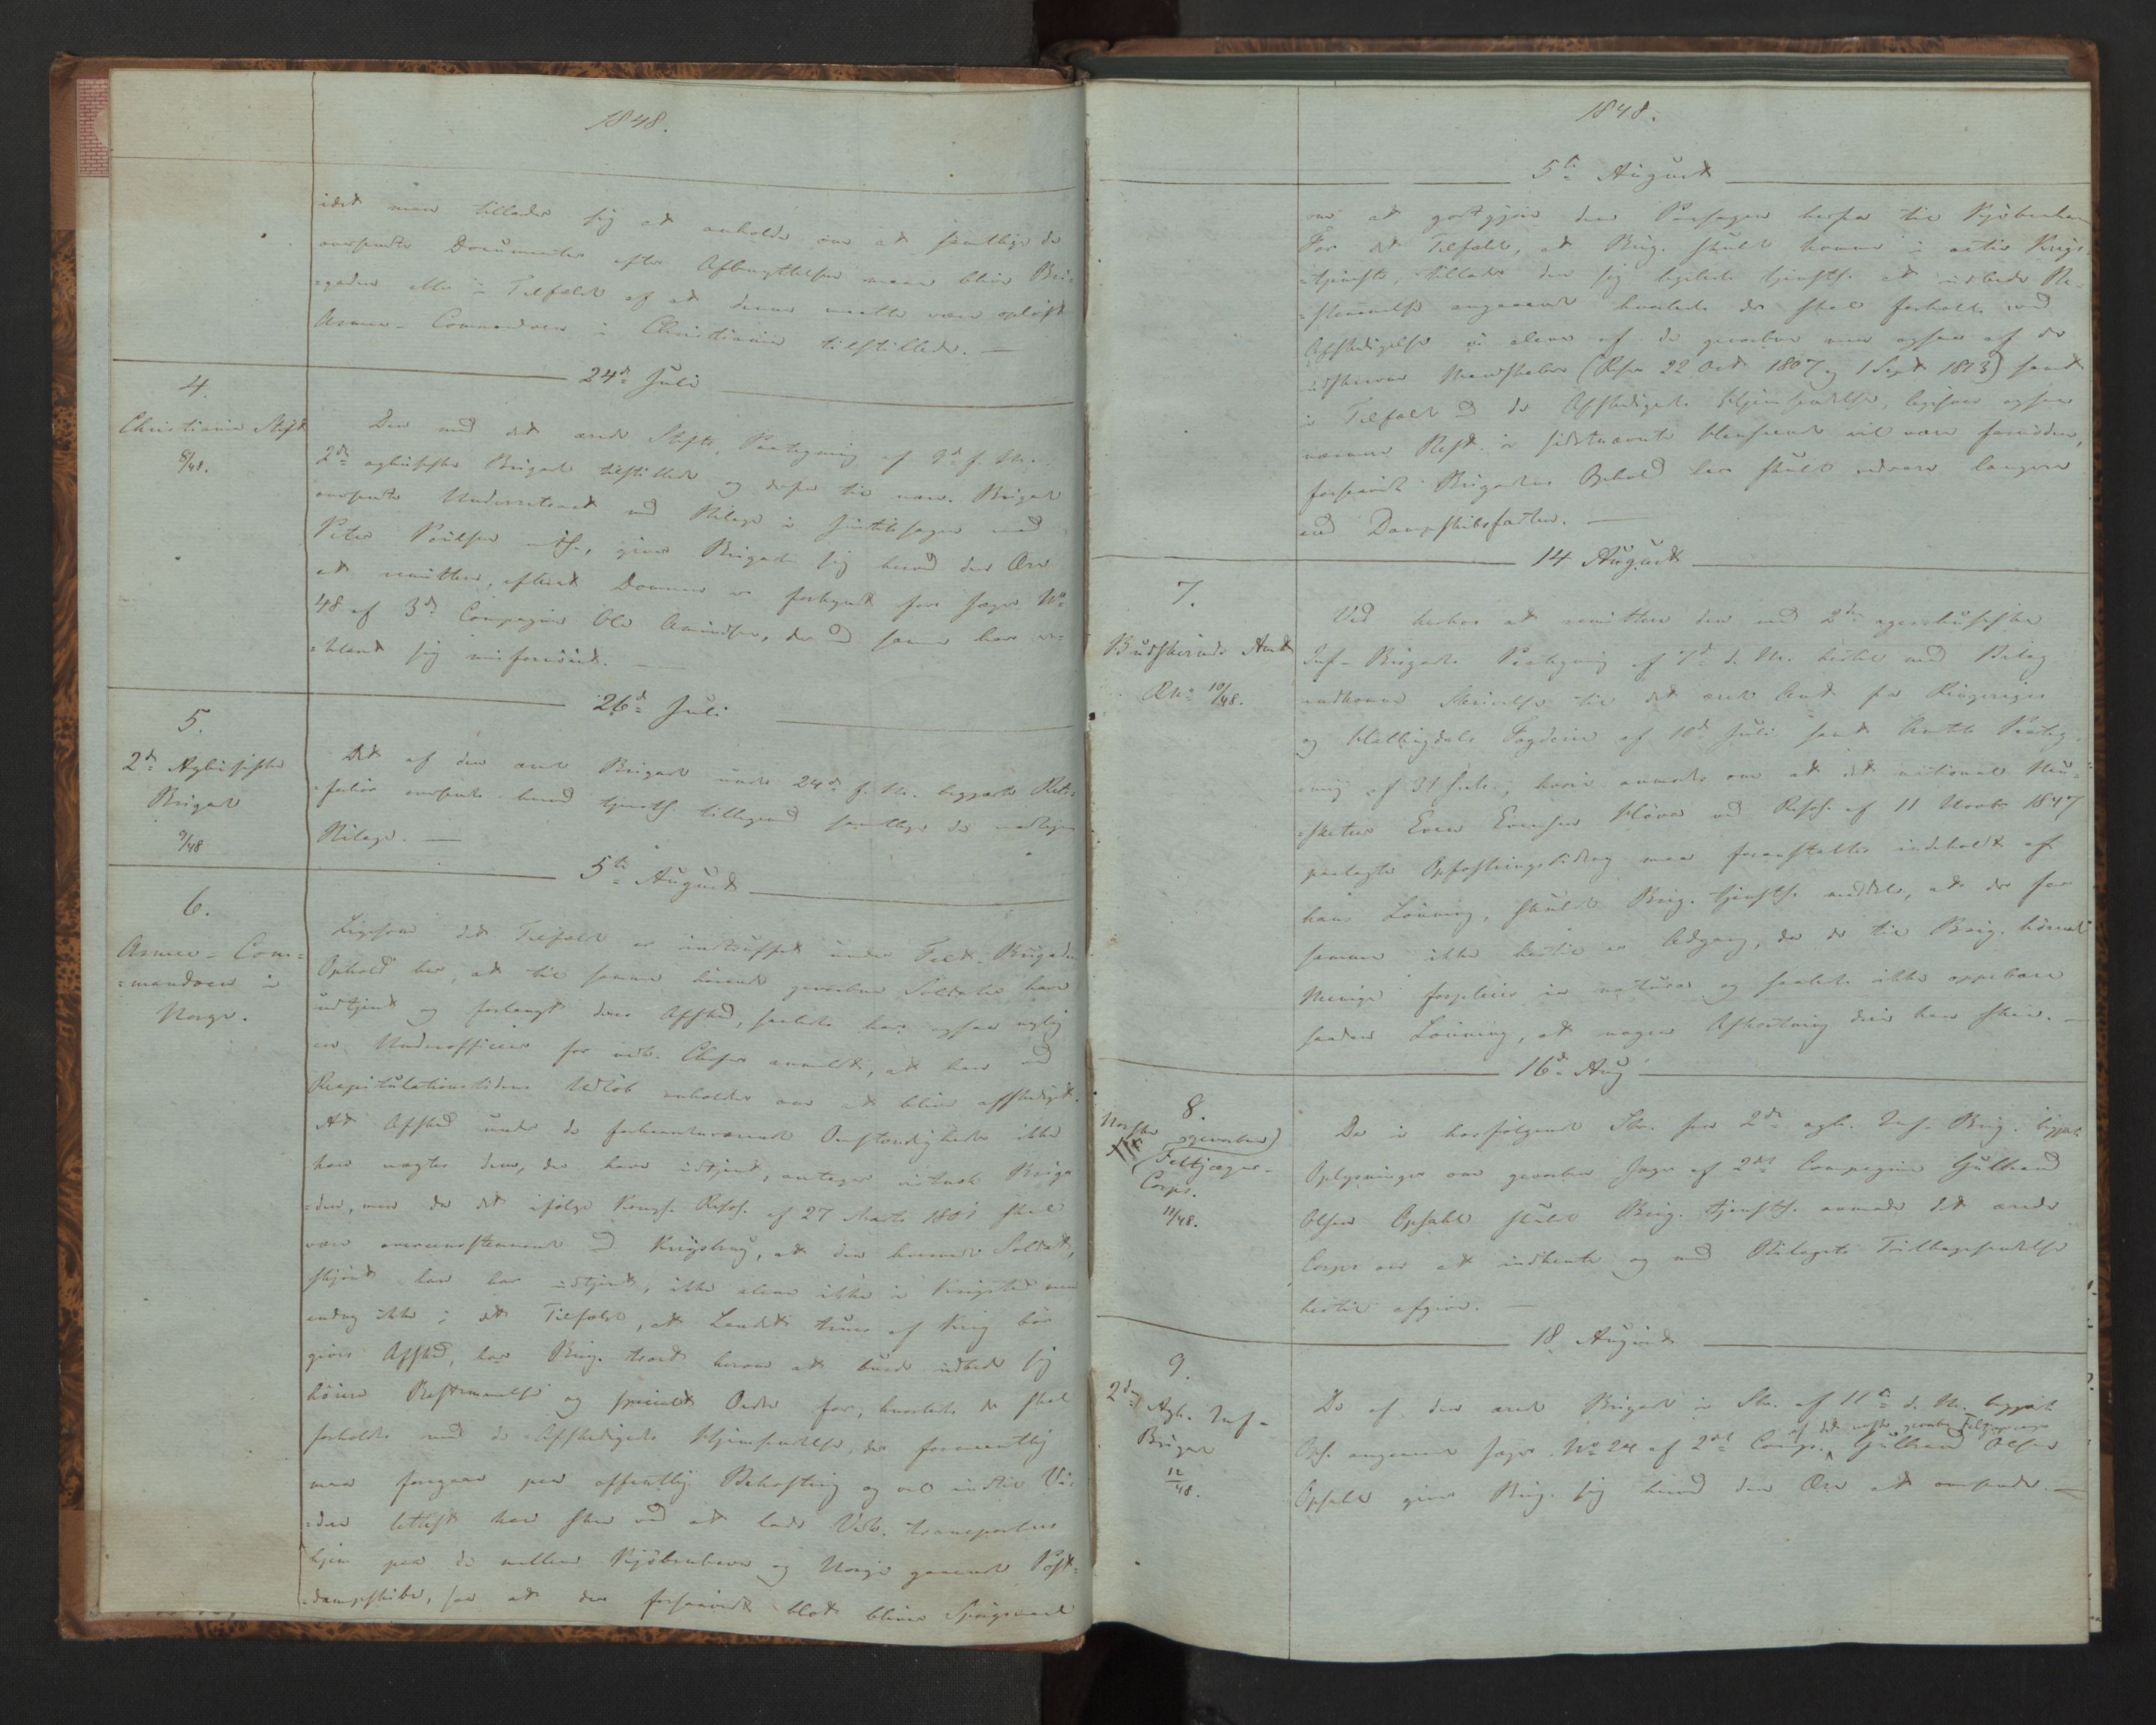 1848.
idet man tillader sig at anholde om at samtlige de
oversendte Documenter efter Afbenyttelsen maae blive Bri-
=gaden eller i Tilfælde af at denne maatte være opløst
Armee-Commandoen i Christiania tilstillede. —
24de Juli
4.
Christiania Stift
8/48.
Den med det ærede Stifts Paategning af 9de f. M.
2den aghusiske Brigade tilstillede og derfra til nærv. Brigade
oversendte Underretsact med Bilage i Justitssagen mod
Peter Poulsen giver Brigaden sig herved den Ære
at remittere, efterat Dommen er forkyndt for Jæger No
48 af 3de Compagnie Ole Amundsen, der med samme har er=
=klæret sig misfornöiet. —
26de Juli
5.
2den Aghusiske
Brigade
9/48
Det af den ærede Brigade under 24de f. M. begjærte
oversendes herved tjenstl. tilligemed samtlige de modtagne
Bilage. —
5te August
6.
Armee-Com=
=mandoen i
Norge.
Ligesom det Tilfælde er indtruffet under Felt-Brigadens
Ophold her, at til samme hörende gevorbne Soldater have
udtjent og forlangt deres Afsked, saaledes har ogsaa nylig
en Underofficier for vedk. Chefer anmeldt, at han ved
Kapitulationstidens Udlöb anholder om at blive afskediget.
At Afsked under de forhaandenværende Omstændigheder ikke
kan nægtes dem, der have udtjent, antager vistnok Briga
=den, men da det ifölge Kongl. Resol. af 27 Marts 1801 skal
være overeensstemmende med Krigsbrug, at den hvervede Soldat,
skjöndt han har udtjent, ikke alene ikke i Krigstid men
endog ikke i det Tilfælde, at Landet trues af Krig bör
gives Afsked, har Brig. troet herom at burde udbede sig
höiere Bestemmelse og specielle Ordre for, hvorledes der skal
forholdes med de Afskedigedes Hjemsendelse, der formeentlig
maa foregaae paa offentlig Bekostning og vel indtil Vi=
=dere lettest kan skee ved at lade Vedk. transportere
hjem paa de mellem Kjöbenhavn og Norge gaaende Post=
=dampskibe, saa at der forsaavidt blot bliver Spörgsmaal
1848.
5te August
om at godtgjöre dem Passagen herfra til Kjöbenhavn
For det Tilfælde, at Brig. skulde komme i activ Krigs-
=tjeneste, tillader den sig ligeledes tjenstl. at udbede Be-
=stemmelse angaaende hvorledes der skal forholdes med
Afskedigelse ei alene af de gevorbne men ogsaa af de
udskrevne Mandskaber (Resn 22 Oct 1807 og 1 Sept 1813) samt
i Tilfælde med de Afskedigedes Hjemsendelse, ligesom ogsaa
nærmere Best. i sidstnævnte Henseende vil være fornöden,
forsaavidt Brigadens Ophold her skulde udvare længere
end Dampskibsfarten. —
14 August
7.
Buskeruds Amt
RNo 10/48.
Ved herhos at remittere den med 2den agershusiske
Inf-Brigades Paategning af 7de d. M. hertil med Bilag
indkomne Skrivelse til det ærede Amt fra Ringeriges
og Hallingdals Fogderie af 10de Juli samt Amtets Paateg-
=ning af 31 s. M., hvori anmodes om at det national Mu=
=sketeer Even Evensen Höva ved Resol. af 11 Novbr 1847
paalagte Opfostringsbidrag maa foranstaltes indeholdt af
hans Lönning, skulde Brig. tjenstl. melde, at der for
samme ikke hertil er Adgang, da de til Brig. hörende
Menige forpleies in natura og saaledes ikke oppebære
saadan Lönning, at nogen Afkortning deri kan skee. —
16de Aug
8.
Norske
gevorbne
Feltjæger-
Corps.
11/48.
De i hosfölgende Skr. fra 2den agh. Inf. Brig. begjærte
Oplysninger om gevorben Jæger af 2det Compagnie Gulbrand
Olsen Opsahl skulde Brig. tjenstl. anmode det ærede
Corps om at indhente og med Bilagets Tilbagesendelse
hertil afgive. —
18 August
9.
2den Agh. Inf-
Brigade
12/48.
De af den ærede Brigade i Skr. af 11te d. M. begjærte
Opl. angaaende Jæger No 24 af 2det Comp. af det norske gevorbne Feltjægercorps Gulbrand Olsen
Opsahl giver Brig. sig herved den Ære at oversende. —